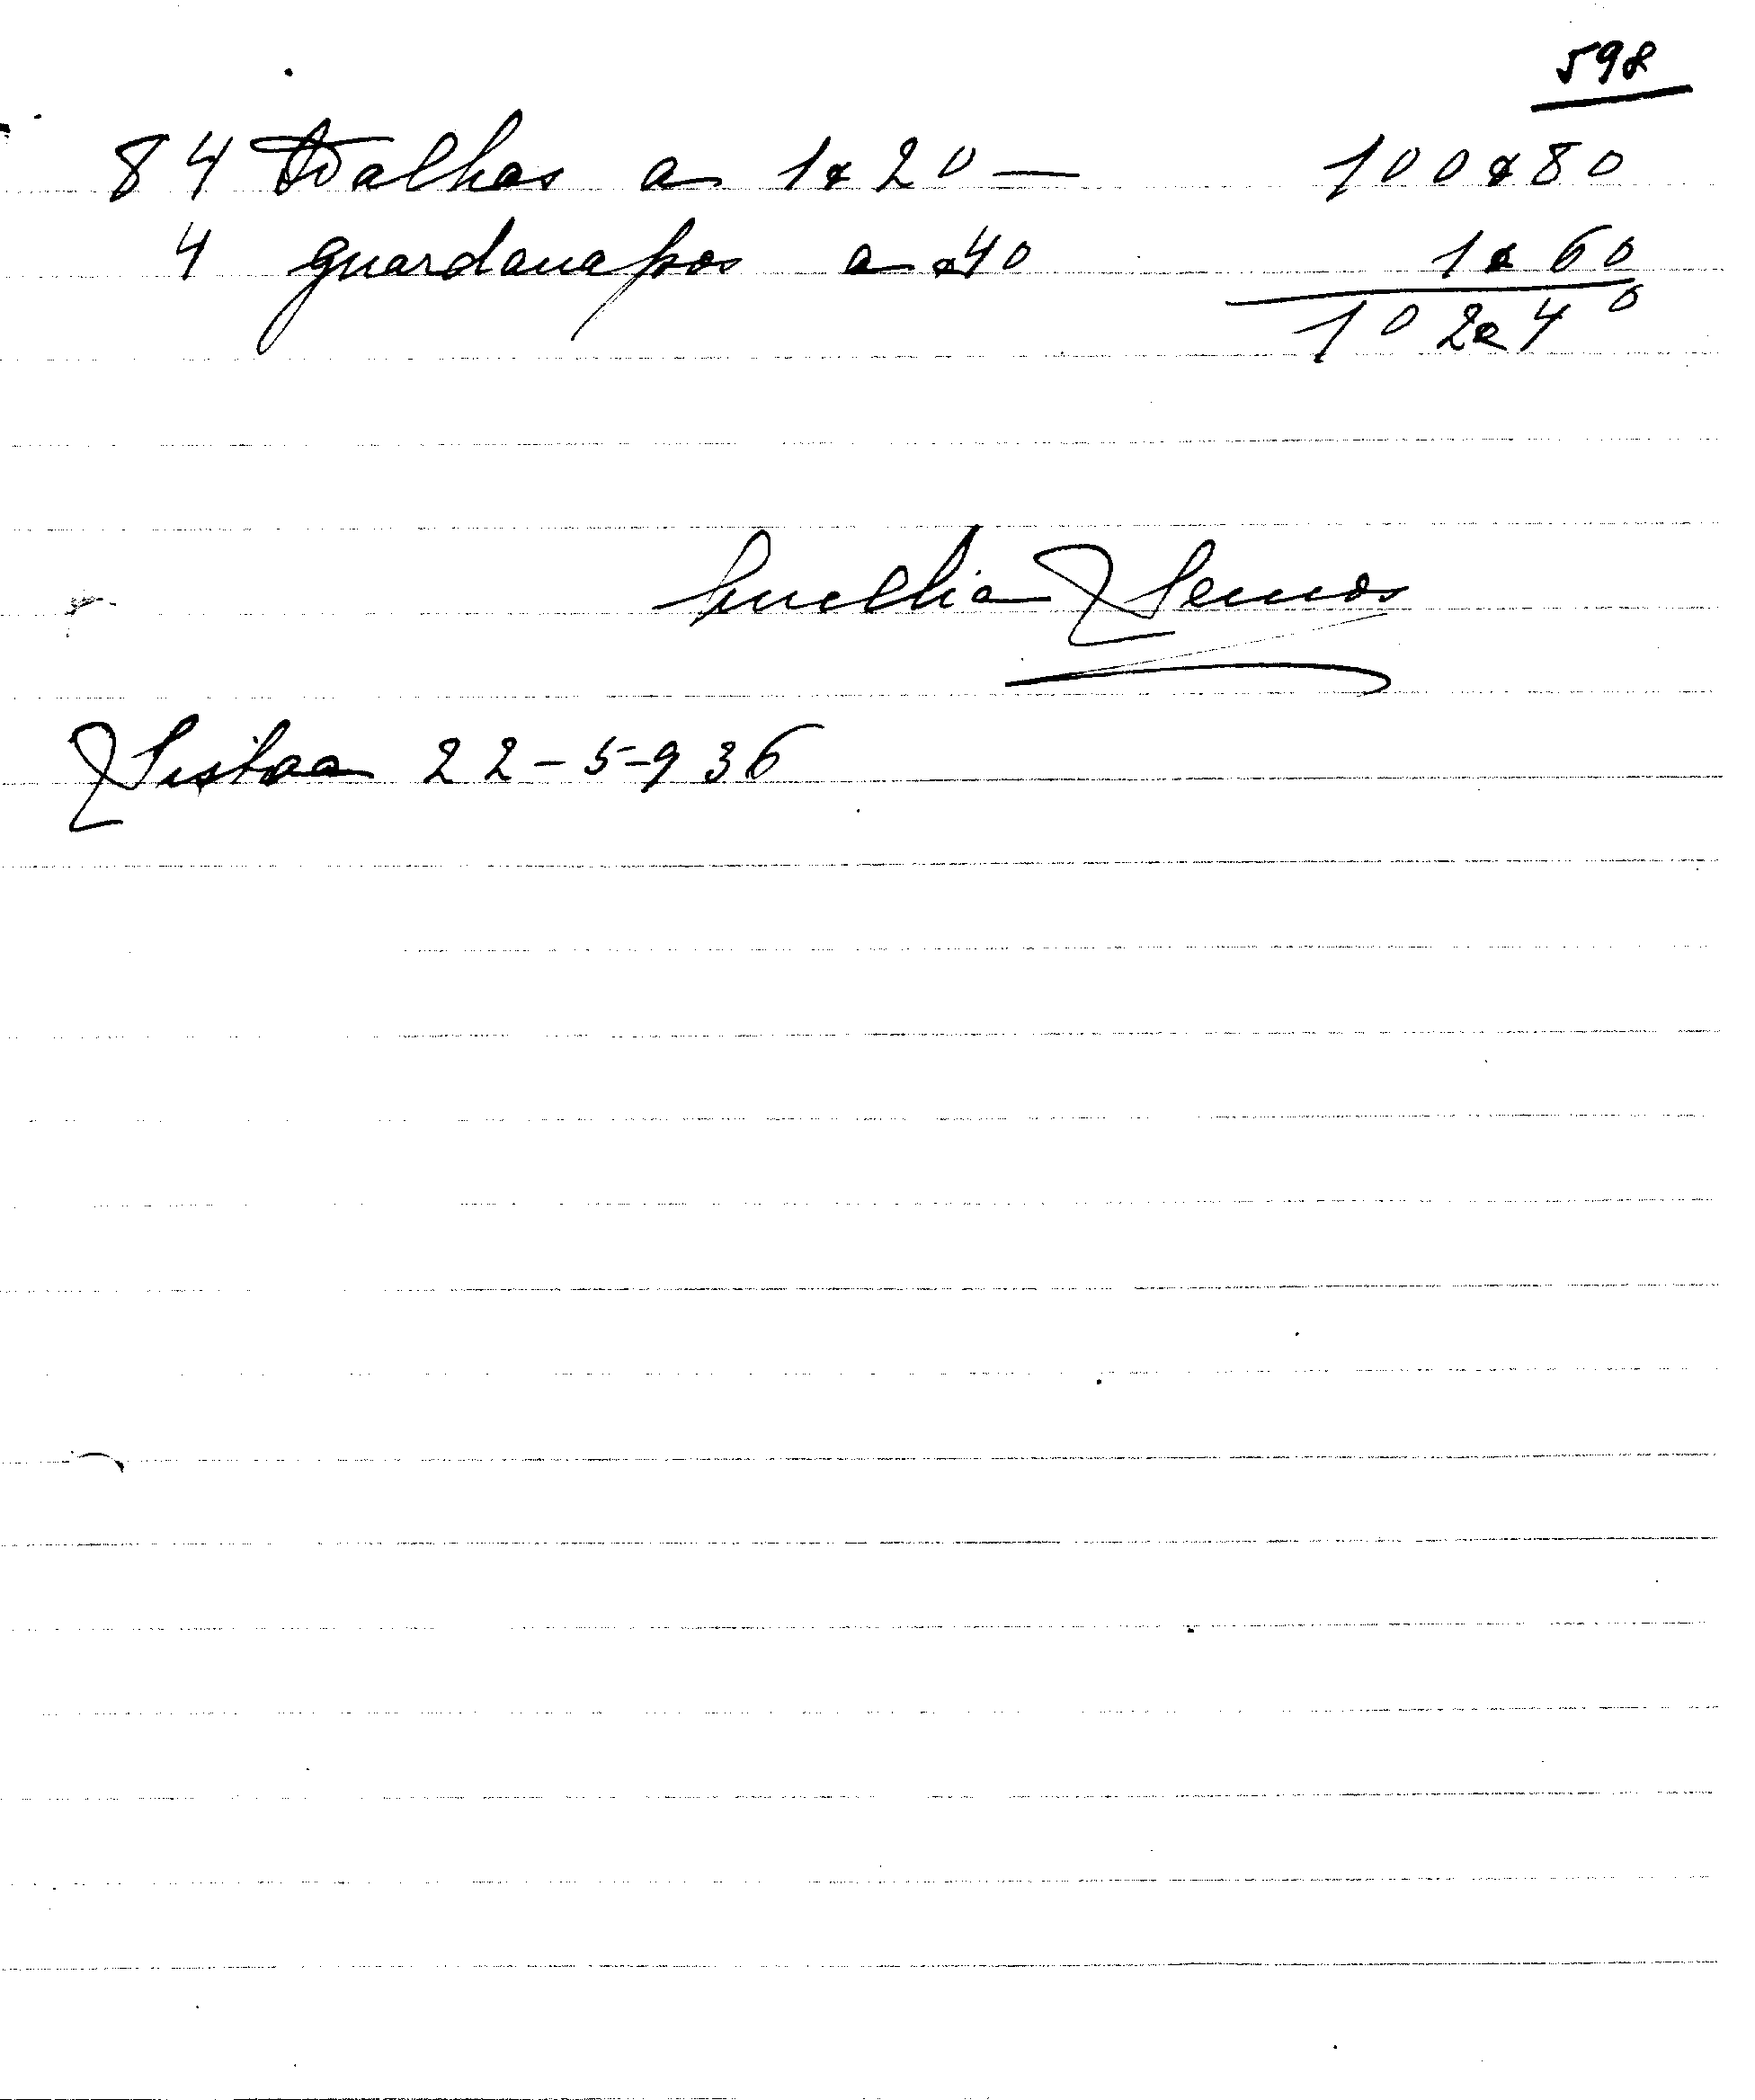 598
84 Toalhas a 1$20 — 100$80
4 guardanapos a $40 1$60
102$40
Lemos
Lisboa 22-5-936